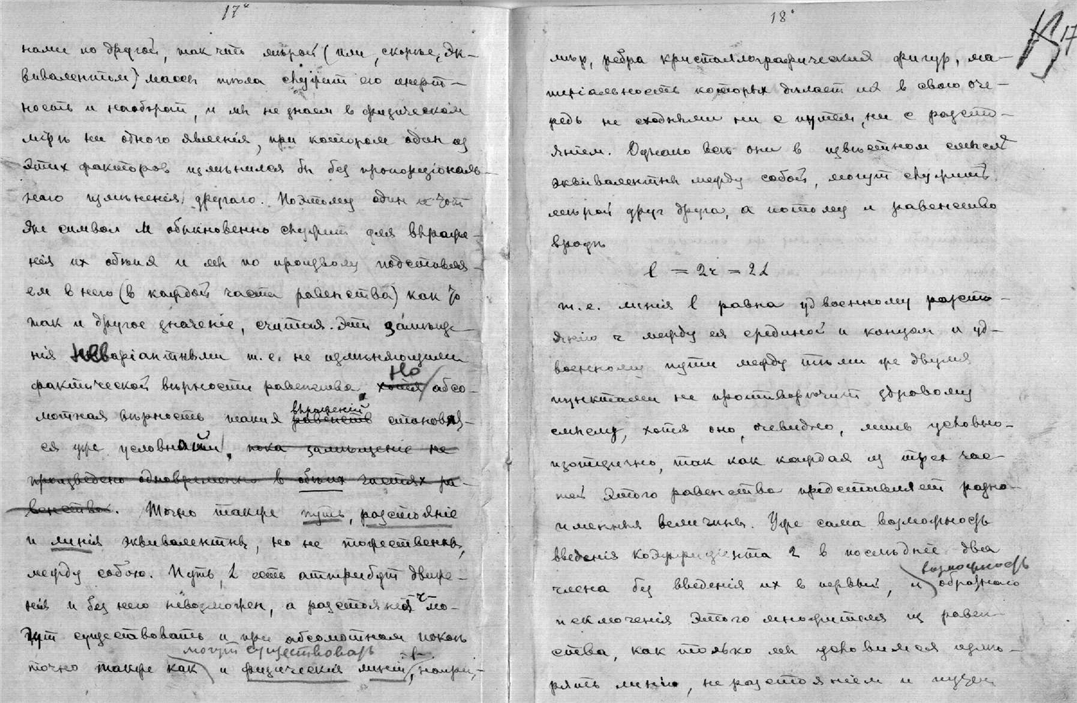 17
нами по другой, так что мѣрой (или, скорѣе, эк-
вивалентом) массы тѣла служит его инерт-
ность и наоборот, и мы не знаем в физическом
мірѣ ни одного явленія, при котором один из
этих факторов измѣнился бы без пропорціональ-
наго измѣненія другаго. Поэтому один и тот
же символ М обыкновенно служит для выраже-
нія их обоих и мы по произволу подставля-
ем в него (в каждой части равенства) как то
так и другое значеніе, считая эти замѣще-
нія неваріантными т.е. не измѣняющими
фактической вѣрности равенства. Но хотя абсо-
лютная вѣрность таких выраженій равенств становит-
ся уже условной, пока замѣщеніе не
произведено одновременно в обоих частях ра-
венства. Точно также путь, разстояніе
и линія эквивалентны, но не тожественны,
между собою. Путь, L есть аттрибут движе-
нія и без него невозможен, а разстоянія r мо-
гут существовать и при абсолютном покоѣ
могут существовать
точно также как и физическія линіи l, напри-
18
мѣр, ребра кристаллографических фигур, ма-
теріальность которых дѣлает их в свою оче-
редь не сходными ни с путем, ни с разсто-
яніем. Однако всѣ они в извѣстном смыслѣ
эквивалентны между собой, могут служить
мѣрой друг друга, а потому и равенство
вродѣ
l = 2r = 2L
т.е. линія l равна удвоенному разсто-
янію r между ея срединой и концом и уд-
военному пути между тѣми же двумя
пунктами не противорѣчит здравому
смыслу, хотя оно, очевидно, лишь условно-
изотично, так как каждая из трех час-
тей этого равенства представляет разно-
именныя величины. Уже сама возможность
введенія коэффиціента 2 в послѣдніе два
члена без введенія их в первый, и возможность обратнаго
исключенія этого множителя из равен-
ства, как только мы условимся измѣ-
рять линію, не разстояніем и путем